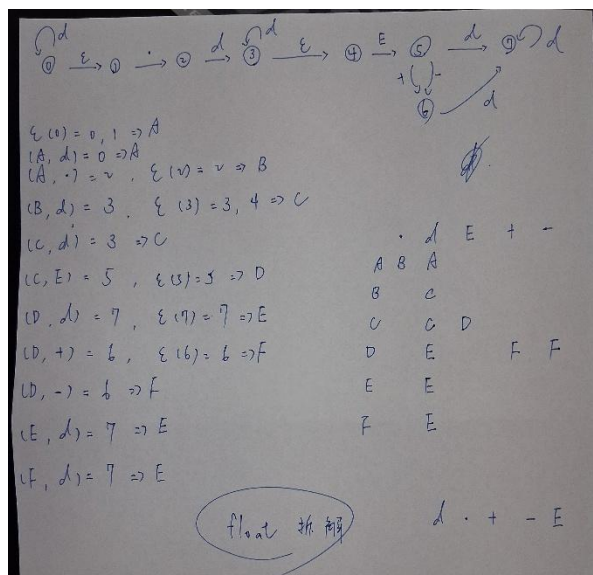 d d
⓪ ε ① · ② d ③ ε ④ E ⑤ d ⑦ d
+ -
⑥ d
ε(0) = 0, 1 => A
(A, d) = 0 => A
(A, ·) = 2, ε(2) = 2 => B
(B, d) = 3, ε(3) = 3, 4 => C
(C, d) = 3 => C
(C, E) = 5, ε(5) = 5 => D
(D, d) = 7, ε(7) = 7 => E
(D, +) = 6, ε(6) = 6 => F
(D, -) = 6 => F
(E, d) = 7 => E
(F, d) = 7 => E
· d E + -
A B A
B C
C C D
D E F F
E E
F E
float 拆解
d · + - E